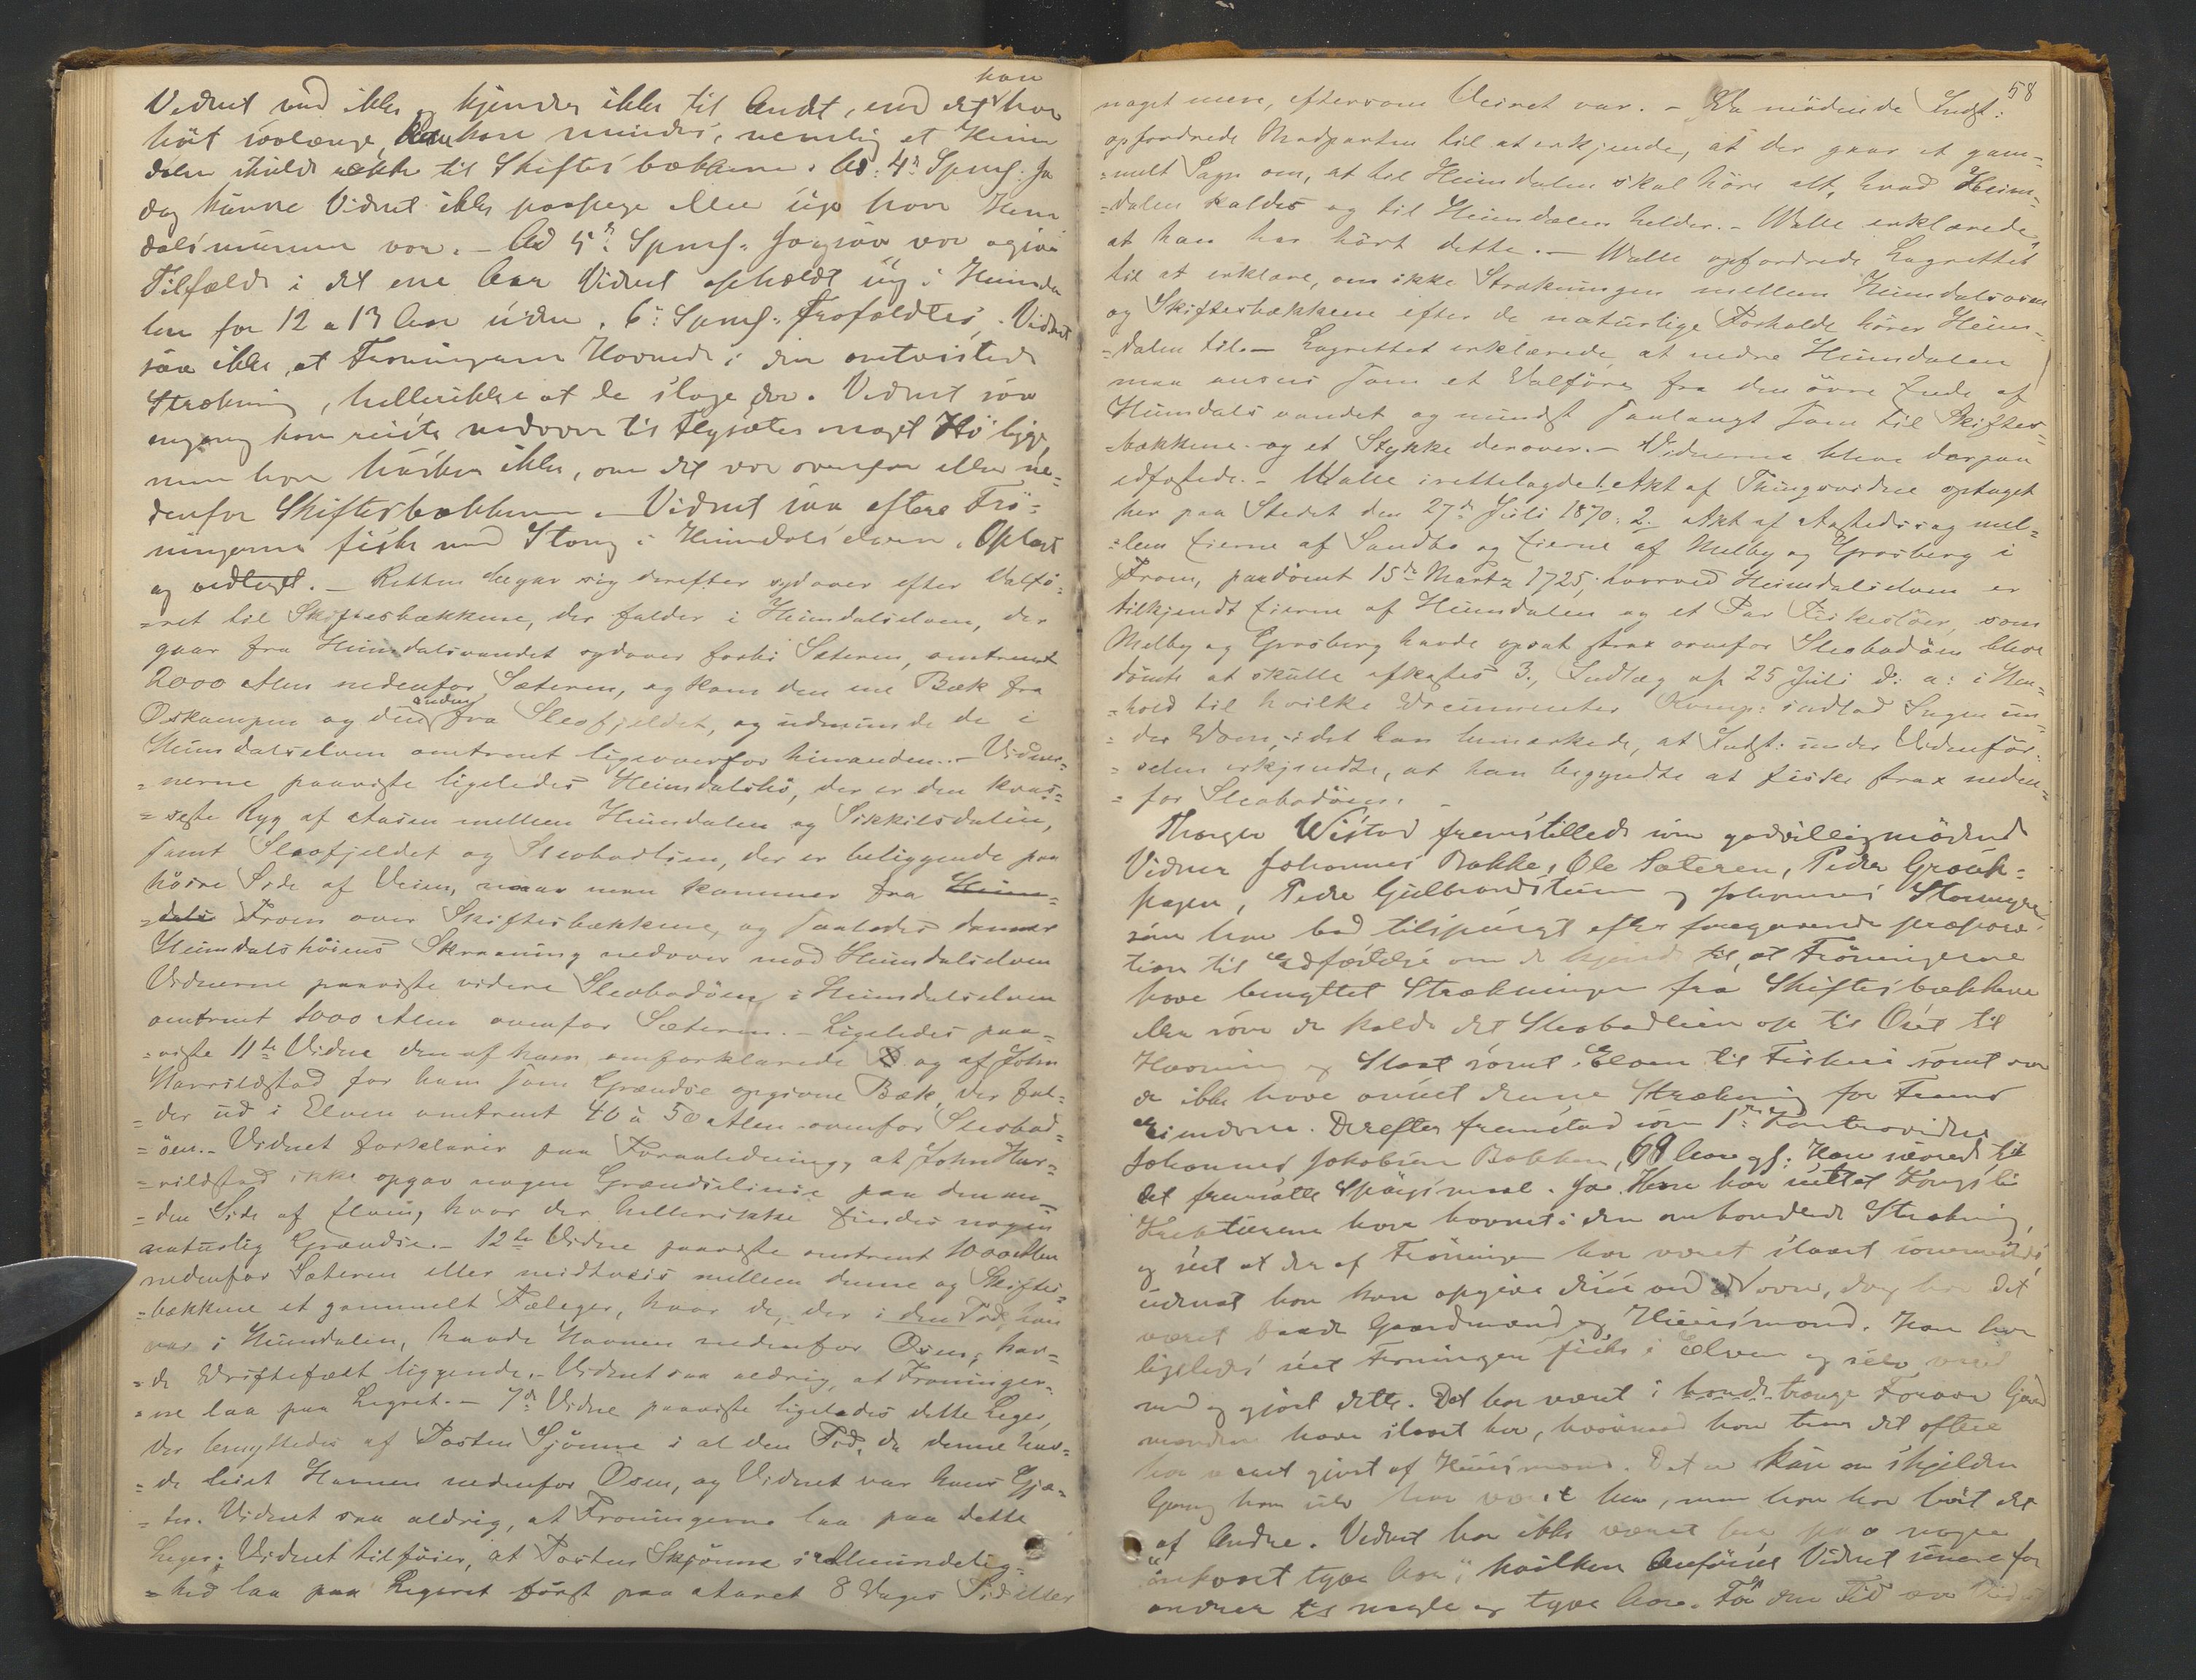 han
Vidnet ved ikke og kjender ikke til Andet, end det har
hørt saalænge, han mindes, nemlig at Heim
dalen skulde række til Skiftesbækkene. Ad. 4de Spmsl. Ja
dog kunne Vidnet ikke paapege eller sige hvor Heim
dalsmunnen var. — Ad 5te Spmsl. Jagsaa var ogsaa
Tilfælde i det ene Aar Vidnet opholdt sig i Heimda
len for 12 a 13 Aar siden. 6te Spmsl. Frafaldtes. Vidnet
saa ikke, at Froningerne Havnede i den omtvistede
Strækning, hellerikke at de sloge der. Vidnet saa
engang han reiste nedover til Flysæter noget Hø ligge
men han husker ikke, om det var ovenfor eller ne-
denfor Skiftesbækkene. — Vidnet saa oftere Frø-
ningerne fiske med Stang i Heimdalselven. Oplæst
og vedtaget. — Retten begav sig derefter sydover efter Valfø-
=ret til Skiftesbækkene, der falder i Heimdalselven, der
gaar fra Heimdalsvandet sydover forbi Sæteren, omtrent
2000 Alen nedenfor Sæteren, og kom den ene Bæk fra
Oskampen og den anden fra Sleofjeldet, og udmunde de i
Heimdalselven omtrent ligeoverfor hinanden. — Vidner-
=nerne paaviste ligeledes Heimdalshø, der er den kvas-
=seste Ryg af Aasen mellem Heimdalen og Sikkilsdalen,
samt Sleofjeldet og Sleobadlien, der er beliggende paa
høire Side af Veien, naar man kommer fra Heim-
=dals Fron over Skiftesbækkene, og saaledes danner
Heimdalshøiens Skraaning nedover mod Heimdalselven
Vidnerne paaviste videre Sleabadøen i Heimdalselven
omtrent 1000 Alen ovenfor Sæteren. — Ligeledes paa-
=viste 11te Vidne den af ham omforklarede og af John
Harrildstad for ham som Grændse opgivne Bæk, der fal-
=der ud i Elven omtrent 40 à 50 Alen ovenfor Sleobad-
=øen. — Vidnet forklarer paa Foranledning, at John Har-
=rildstad ikke opgav nogen Grændselinie paa den an-
=den Side af Elven, hvor der hellerikke findes nogen
naturlig Grændse. — 12te Vidne paaviste omtrent 1000 Alen
nedenfor Sæteren eller midtveis mellem denne og Skiftes-
=bækkene et gammelt Fæleger, hvor de, der i den Tid, han
var i Heimdalen, havde Havnen nedenfor Osen, hav-
=de Driftefæet liggende. — Vidnet saa aldrig, at Froninger-
=ne laa paa Legret. — 7de Vidne paaviste ligeledes dette Leger,
der benyttedes af Posten Sjønne i al den Tid, da denne hav-
=de leiet Havnen nedenfor Osen, og Vidnet var hans Gjæ-
=ter. Vidnet saa aldrig, at Froningerne laa paa dette
Leger. Vidnet tilføier, at Posten Skjønne i Almindelig-
=hed laa paa Legeret først paa Aaret 8 Dages Tid eller
58
noget mere, eftersom Veiret var. — De mødende Indst:
opfordrede Modparten til at erkjende, at der gaar et gam-
=melt Sagn om, at til Heimdalen skal høre alt, hvad Heim-
=dalen kaldes og til Heimdalen helder. — Walle erklærede,
at han har hørt dette. — Walle opfordrede Lagrettet
til at erklære, om ikke Strækningen mellem Heimdalsosen
og Skiftesbækkene efter de naturlige Forholde hører Heim-
=dalen til. — Lagrettet erklærede, at nedre Heimdalen
maa ansees som et Dalføre fra den øvre Ende af
Heimdalsvandet og mindst saalangt som til Skiftes-
bækkene og et Stykke derover. — Vidnerne bleve derpaa
edfæstede. — Walle irettelagde 1. Akt af Thingsvidne optaget
her paa Stedet den 27de Juli 1870; 2. Akt af Aastedssag mel-
=lem Eierne af Sandbo og Eierne af Melby og Grosberg i
Fron, paadømt 15de Martz 1725, hvorved Heimdalselven er
tilkjendt Eierne af Heimdalen og et Par Fiskestøer, som
Melby og Grosberg havde opsat strax ovenfor Sleobadøen bleve
dømte at skulle afkastes 3., Indlæg af 25 Juli d: a: i Hen-
=hold til hvilke Documenter Komp: indlod Sagen un-
=der Dom, idet han bemærkede, at Indst: under Vidnefør-
=selen erkjendte, at han begyndte at fiske strax neden-
=for Sleobadøen. —
Thorger Wistad fremstillede som godvilligmødende
Vidner Johannes Bakke, Ole Sæteren, Peder Grout-
hagen, Peder Gulbrandstuen og Johannes Stormyre
som han bad tilspurgt efter foregaaende præpara-
tion til Edfæstelse om de kjende til, at Frøningerne
have benyttet Strækningen fra Skiftesbækkene
eller som de kalde det Sleobadlien op til Osen til
Havning og Slaat samt Elven til Fiskeri samt om
de ikke have anseet denne Strækning for Frons
Eiendom. Derefter fremstod som 1ste Kontravidne
Johannes Jakobsen Bakken, 68 Aar gl: Han svarede til
det fremsatte Spørgsmaal. Ja. Han har seet at Kongsli
Kreaturene have havnet i den omhandlede Strækning,
og seet at der af Frøninger har været slaaet sammesteds,
uden at han kan opgive disse ved Navn, dog har det
været baade Gaardmænd og Huusmænd. Han har
ligeledes seet Froninger fiske i Elven og selv været
med og gjort dette. Det har været i haarde trange Foraar Gaard
mændene have slaaet her, hvorimod han tror det oftere
har været gjort af Huusmænd. Det er kun en sjelden
Gang han selv har været her, men han har hørt det
af Andre. Vidnet har ikke været her paa nogen
"enkoset tyve Aar", hvilken Anførsel Vidnet senere for
andrer til nogle og tyve Aar. Før den Tid var